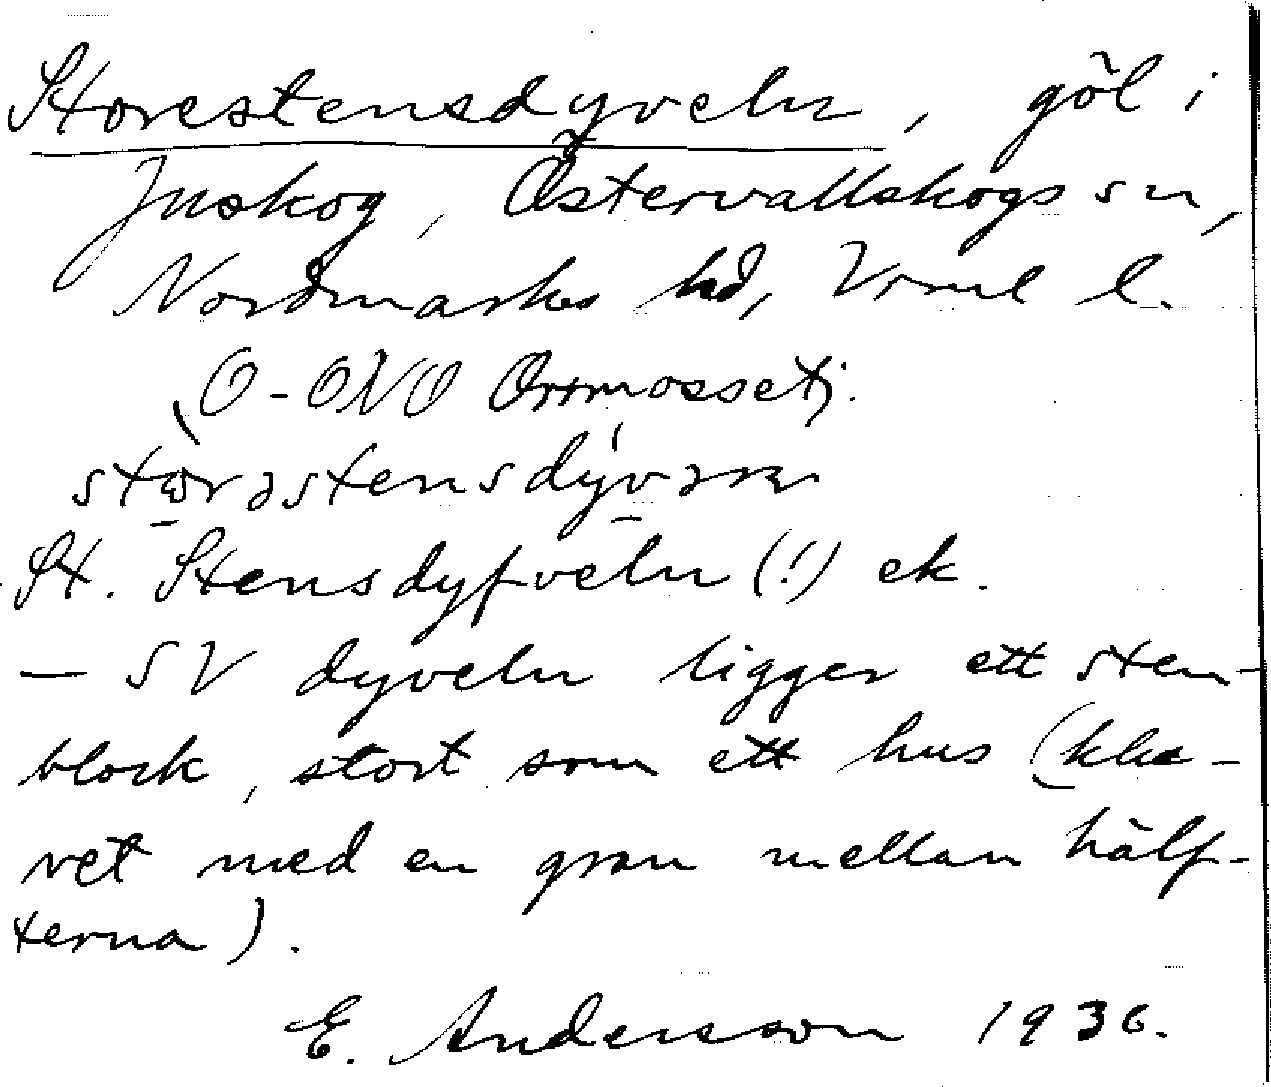 Storestensdyveln, göl i
Juskog, Östervallskogs sn,
Nordmarks hd, Vrml l.
O-ONO Orrmossetj.
stɷrəstensdývəm
St. Stensdyfveln (!) ek.
— SV dyveln ligger ett sten-
block, stort som ett hus (klu-
vet med en gran mellan hälf-
terna).
E. Andersson 1936.